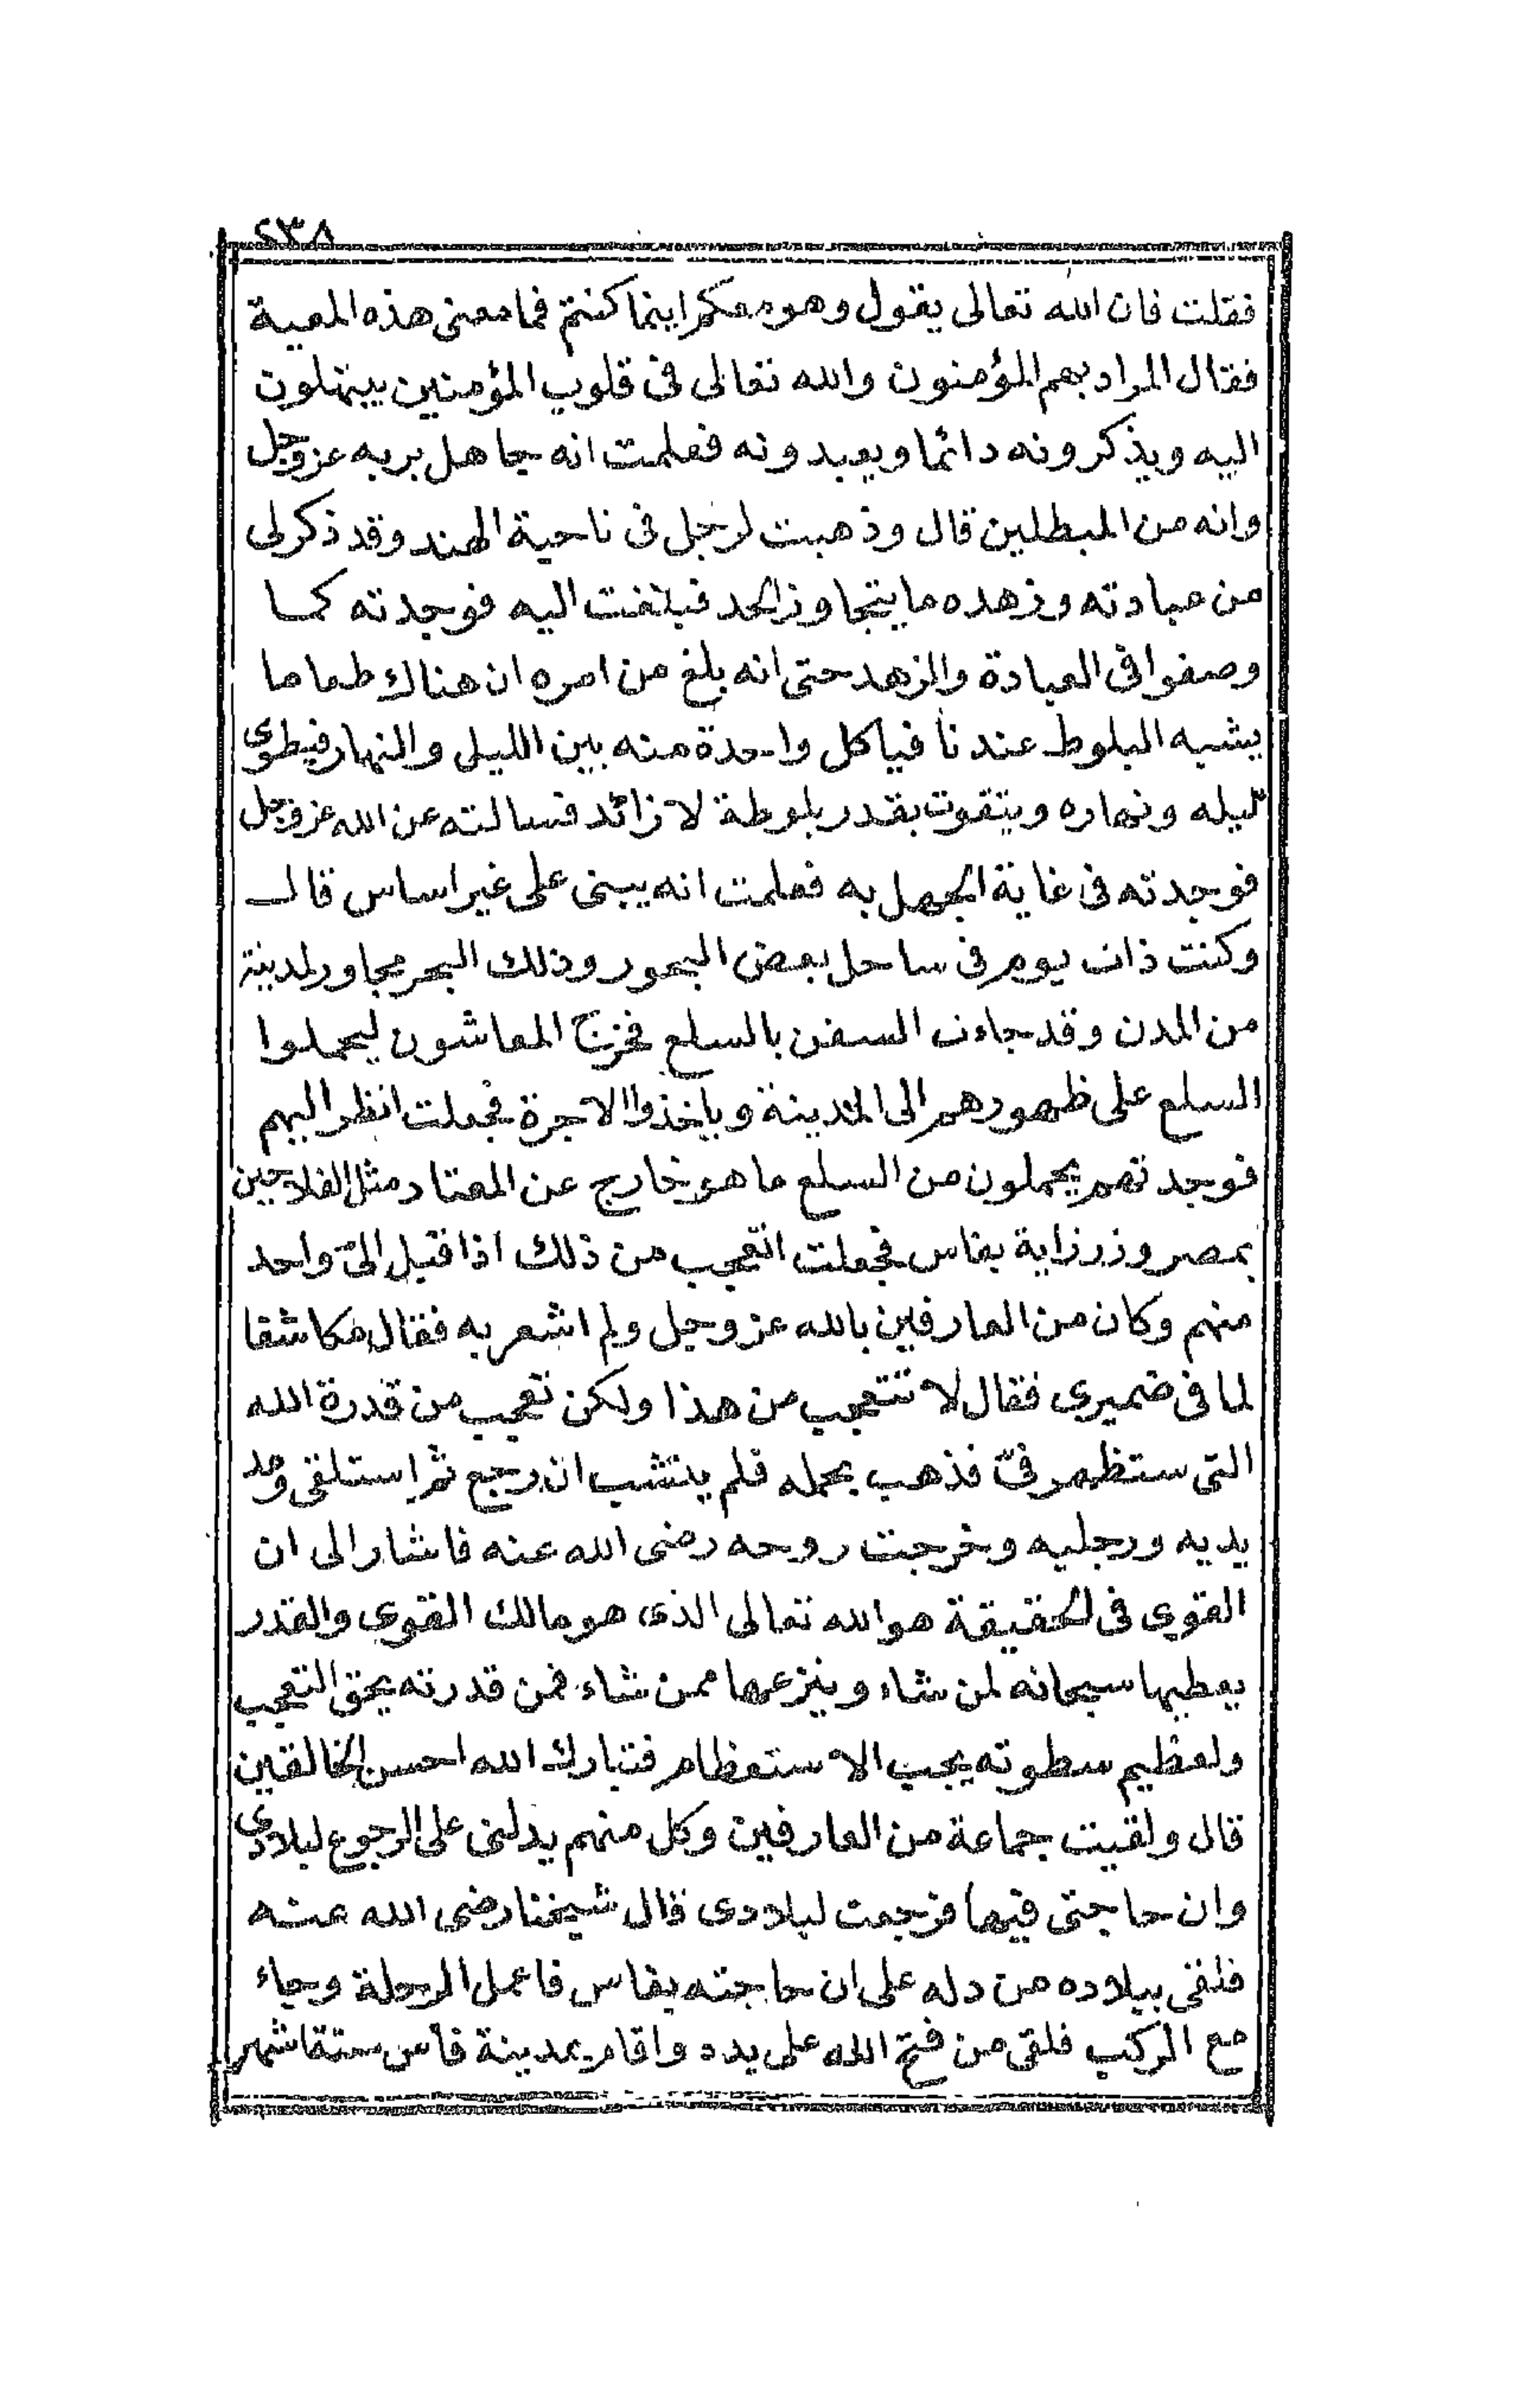 ٢٣٨
فقلت فان الله تعالى يقول وهو معكم اينما كنتم فما معنى هذه المعية
فقال المراد بهم المؤمنون والله تعالى فى قلوب المؤمنين يبتهلون
اليه ويذكرونه دائما ويعبدونه فعلمت انه جاهل بربه عز وجل
وانه من المبطلين قال وذهبت لرجل فى ناحية الهند وقد ذكر لى
من عبادته وزهده ما يتجاوز الحد فبلغت اليه فوجدته كما
وصفوا فى العبادة والزهد حتى انه بلغ من امره ان هناك طعاما
يشبه البلوط عندنا فياكل واحدة منه بين الليل والنهار فيطوى
ليله ونهاره ويتقوت بقدر بلوطة لا زائد فسالته عن الله عز وجل
فوجدته فى غاية الجهل به فعلمت انه يبنى على غير اساس قال
وكنت ذات يوم فى ساحل بعض البحور وذلك البحر مجاور لمدينة
من المدن وقد جاءت السفن بالسلع فخرج المعاشون ليحملوا
السلع على ظهورهم الى المدينة وياخذوا الاجرة فجعلت انظر اليهم
فوجدتهم يحملون من السلع ما هو خارج عن المعتاد مثل الفلاحين
بمصر وزرزاية بفاس فجعلت اتعجب من ذلك اذ اقبل الىّ واحد
منهم وكان من العارفين بالله عز وجل ولم اشعر به فقال مكاشفا
لما فى ضميرى فقال لا تتعجب من هذا ولكن تعجب من قدرة الله
التى ستظهر فىّ فذهب بحمله فلم ينشب ان رجع ثم استلقى ومد
يديه ورجليه وخرجت روحه رضى الله عنه فاشار الى ان
القوى فى الحقيقة هو الله تعالى الذى هو مالك القوى والقدر
يعطيها سبحانه لمن شاء وينزعها ممن شاء فمن قدرته يحق التعجب
ولعظيم سطوته يجب الاستعظام فتبارك الله احسن الخالقين
قال ولقيت جماعة من العارفين وكل منهم يدلنى على الرجوع لبلادى
وان حاجتى فيها فرجعت لبلادى قال شيخنا رضى الله عنه
فلقى ببلاده من دله على ان حاجته بفاس فاعمل الرحلة وجاء
مع الركب فلقى من فتح الله على يده واقام بمدينة فاس ستة اشهر